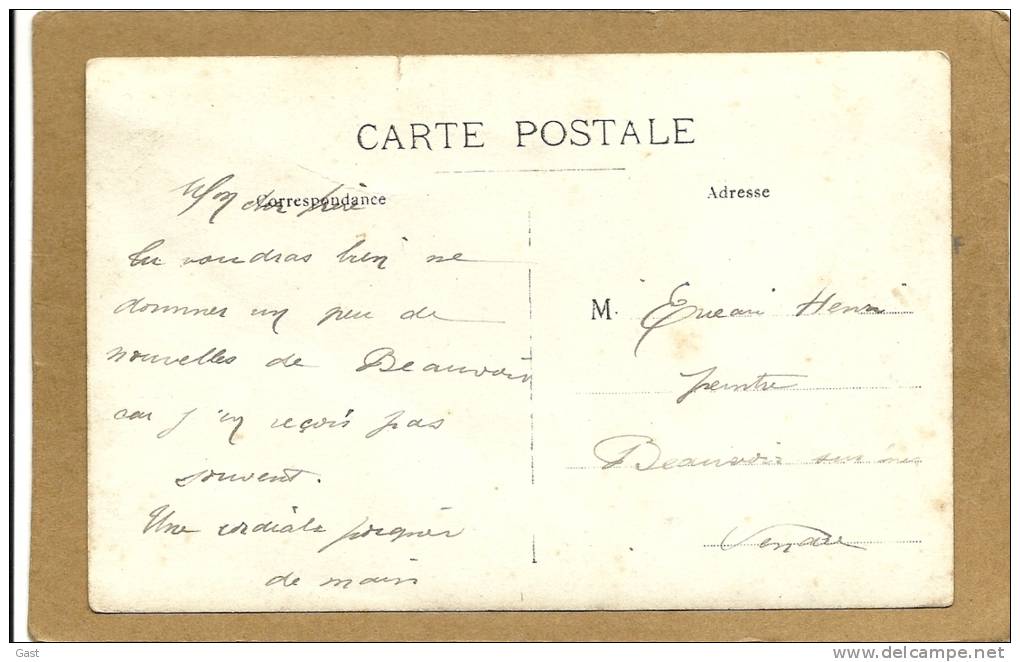 CARTE POSTALE
Correspondance
Mon cher frère
Tu voudras bien me
donner un peu de
nouvelles de Beauvoir
car j'en reçois pas
souvent.
Une cordiale poignée
de main
Adresse
M. Henri
peintre
Beauvoir sur mer
Vendée
Gast
www.delcampe.net